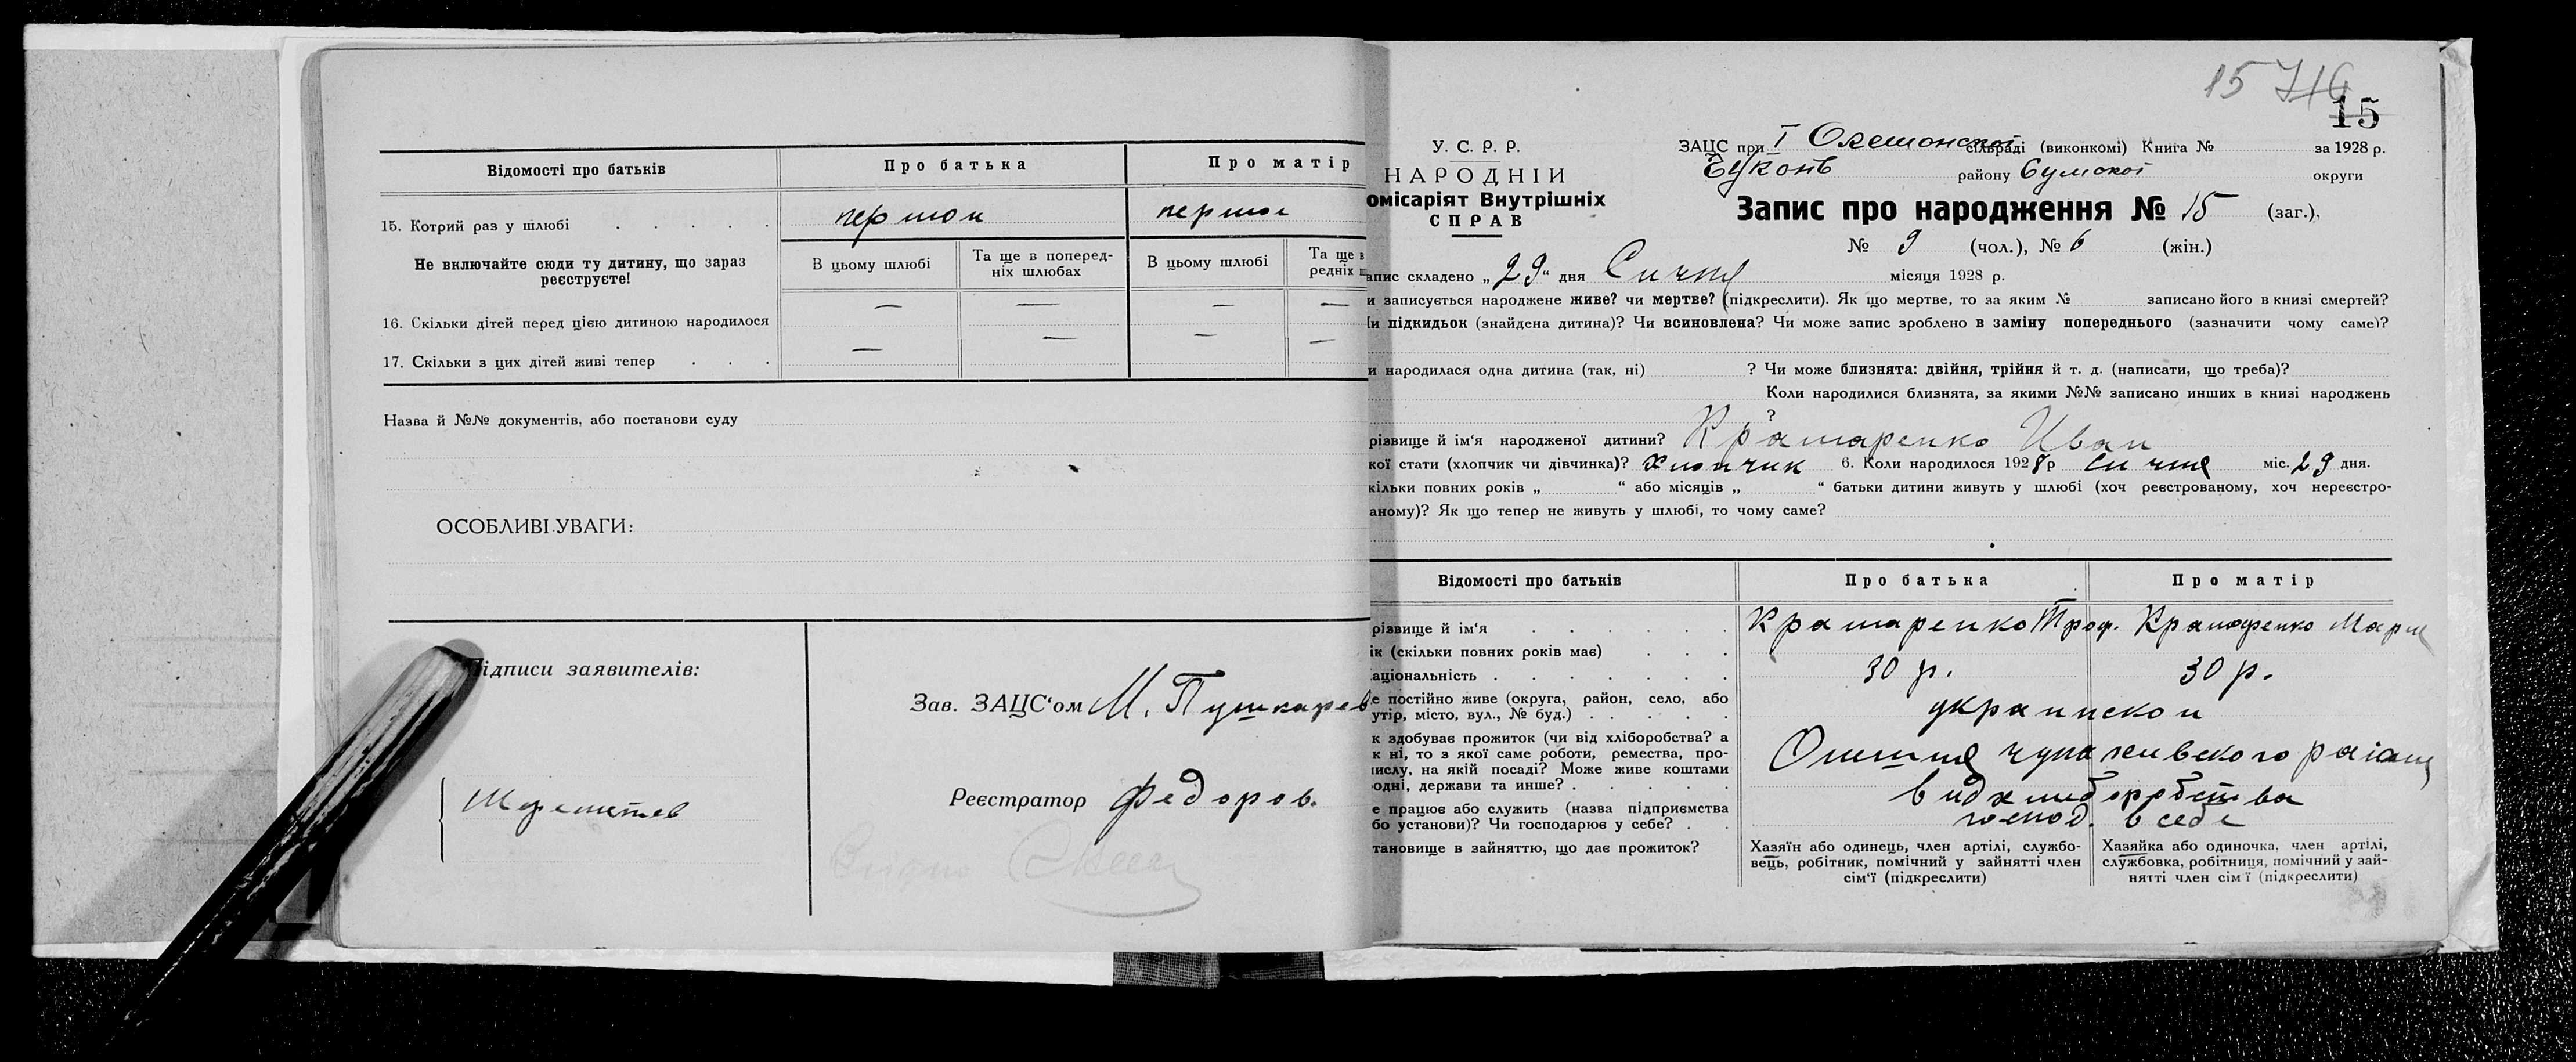 Відомості про батьків
Про батька
Про матір
15. Котрий раз у шлюбі . . . . .
першои
першои
Не включайте сюди ту дитину, що зараз
реєструєте!
В цьому шлюбі
Та ще в поперед-
ніх шлюбах
В цьому шлюбі
Та ще в
редніх ш
16. Скільки дітей перед цією дитиною народилося
— — — —
17. Скільки з цих дітей живі тепер . . .
— — — —
Назва й №№ документів, або постанови суду
ОСОБЛИВІ УВАГИ:
Підписи заявителів:
Зав. ЗАЦС'ом М. Пушкарев
Реєстратор Федоров.
15
15
У. С. Р. Р.
НАРОДНІЙ
омісаріят Внутрішніх
СПРАВ
ЗАЦС при I сільраді (виконкомі) Книга № за 1928 р.
району Сумской округи
Запис про народження № 15 (заг.),
№ 9 (чол.), № 6 (жін.)
апис складено „29“ дня Сичня місяця 1928 р.
и записується народжене живе? чи мертве? (підкреслити). Як що мертве, то за яким № записано його в книзі смертей?
и підкидьок (знайдена дитина)? Чи всиновлена? Чи може запис зроблено в заміну попереднього (зазначити чому саме)?
и народилася одна дитина (так, ні) ? Чи може близнята: двійня, трійня й т. д. (написати, що треба)?
Коли народилися близнята, за якими №№ записано инших в книзі народжень
?
різвище й ім'я народженої дитини? Крамаренко Иван
кої стати (хлопчик чи дівчинка)? Хлопчик 6. Коли народилося 1928 р Сичня міс. 29 дня.
кільки повних років „ “ або місяців „ “ батьки дитини живуть у шлюбі (хоч реєстрованому, хоч нереєстро-
аному)? Як що тепер не живуть у шлюбі, то чому саме?
Відомості про батьків
Про батька
Про матір
різвище й ім'я . . . . . .
Крамаренко Троф.
Крамаренко Мария
ік (скільки повних років має) . . .
30 р.
30 р.
аціональність . . . . . . .
украинскои
е постійно живе (округа, район, село, або
утір, місто, вул., № буд.) . . . . .
к здобуває прожиток (чи від хліборобства? а
к ні, то з якої саме роботи, ремества, про-
мислу, на якій посаді? Може живе коштами
одні, держави та инше? . . . . .
вид хлеборобства
е працює або служить (назва підприємства
бо установи)? Чи господарює у себе? . .
господ. в себе
тановище в зайняттю, що дає прожиток?
Хазяїн або одинець, член артілі, службо-
вець, робітник, помічний у зайнятті член
сім'ї (підкреслити)
Хазяйка або одиночка, член артілі,
службовка, робітниця, помічний у зай-
нятті член сім'ї (підкреслити)